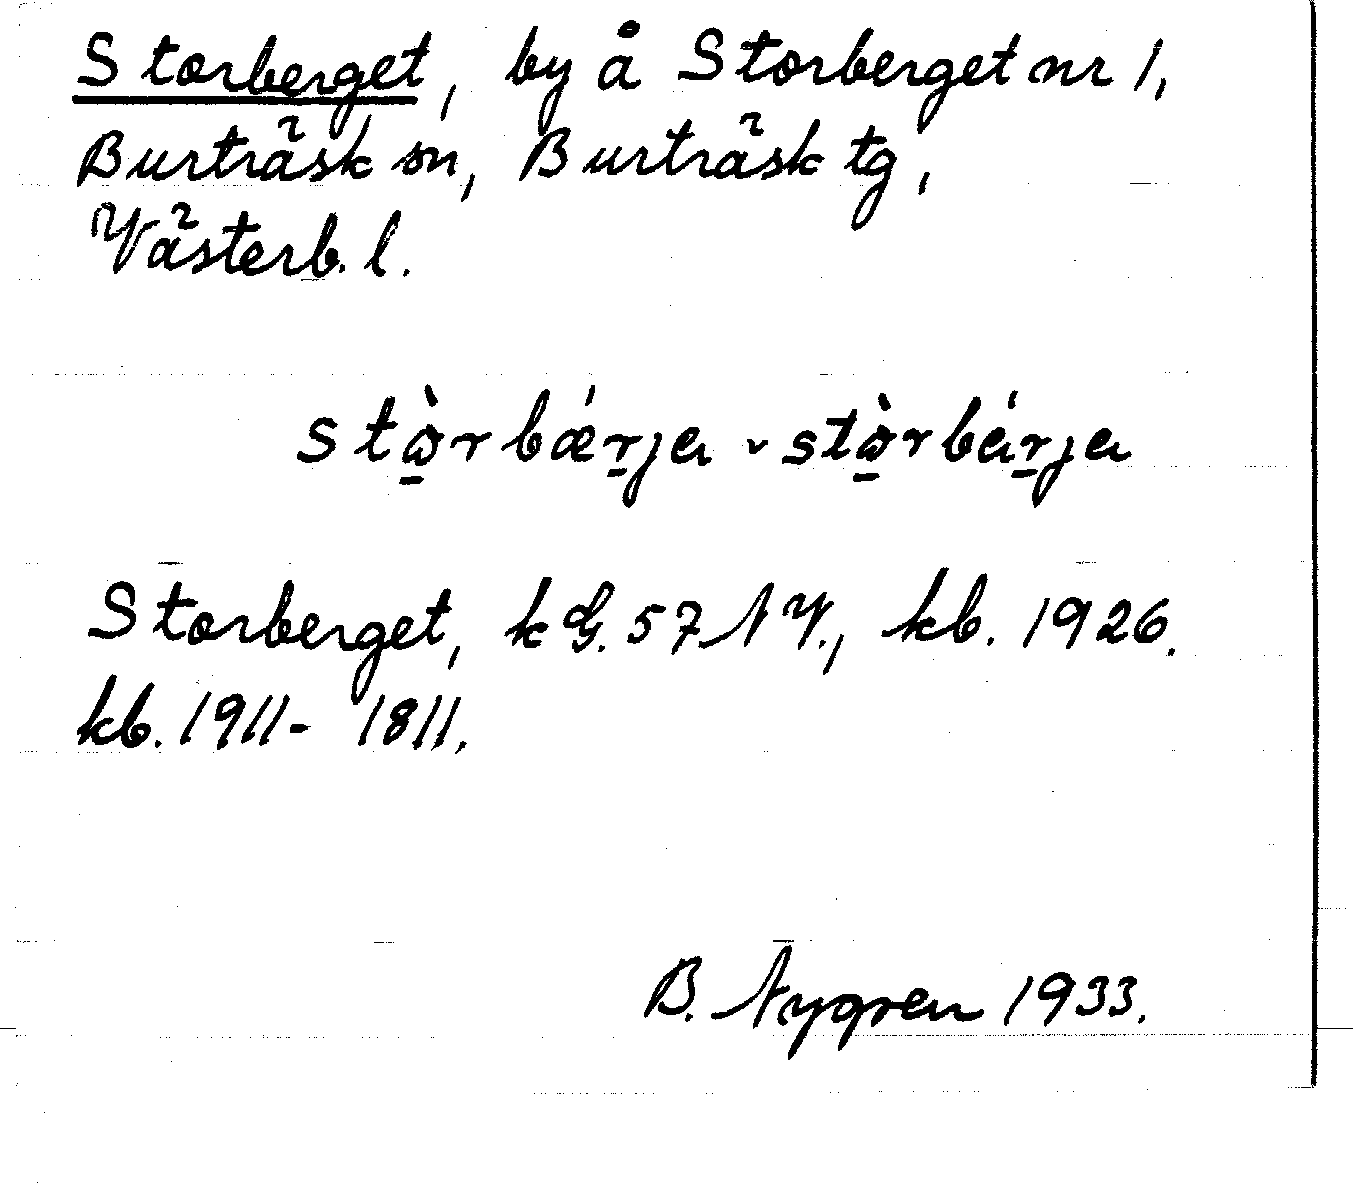 Storberget, by å Storberget nr 1,
Burträsk sn, Burträsk tg,
Västerb. l.
stɷ̠̀rbǽr̠ja v stɷ̠̀rbár̠ja
Storberget, kG. 57 NV., kb. 1926.
kb. 1911- 1811.
B. Nygren 1933.